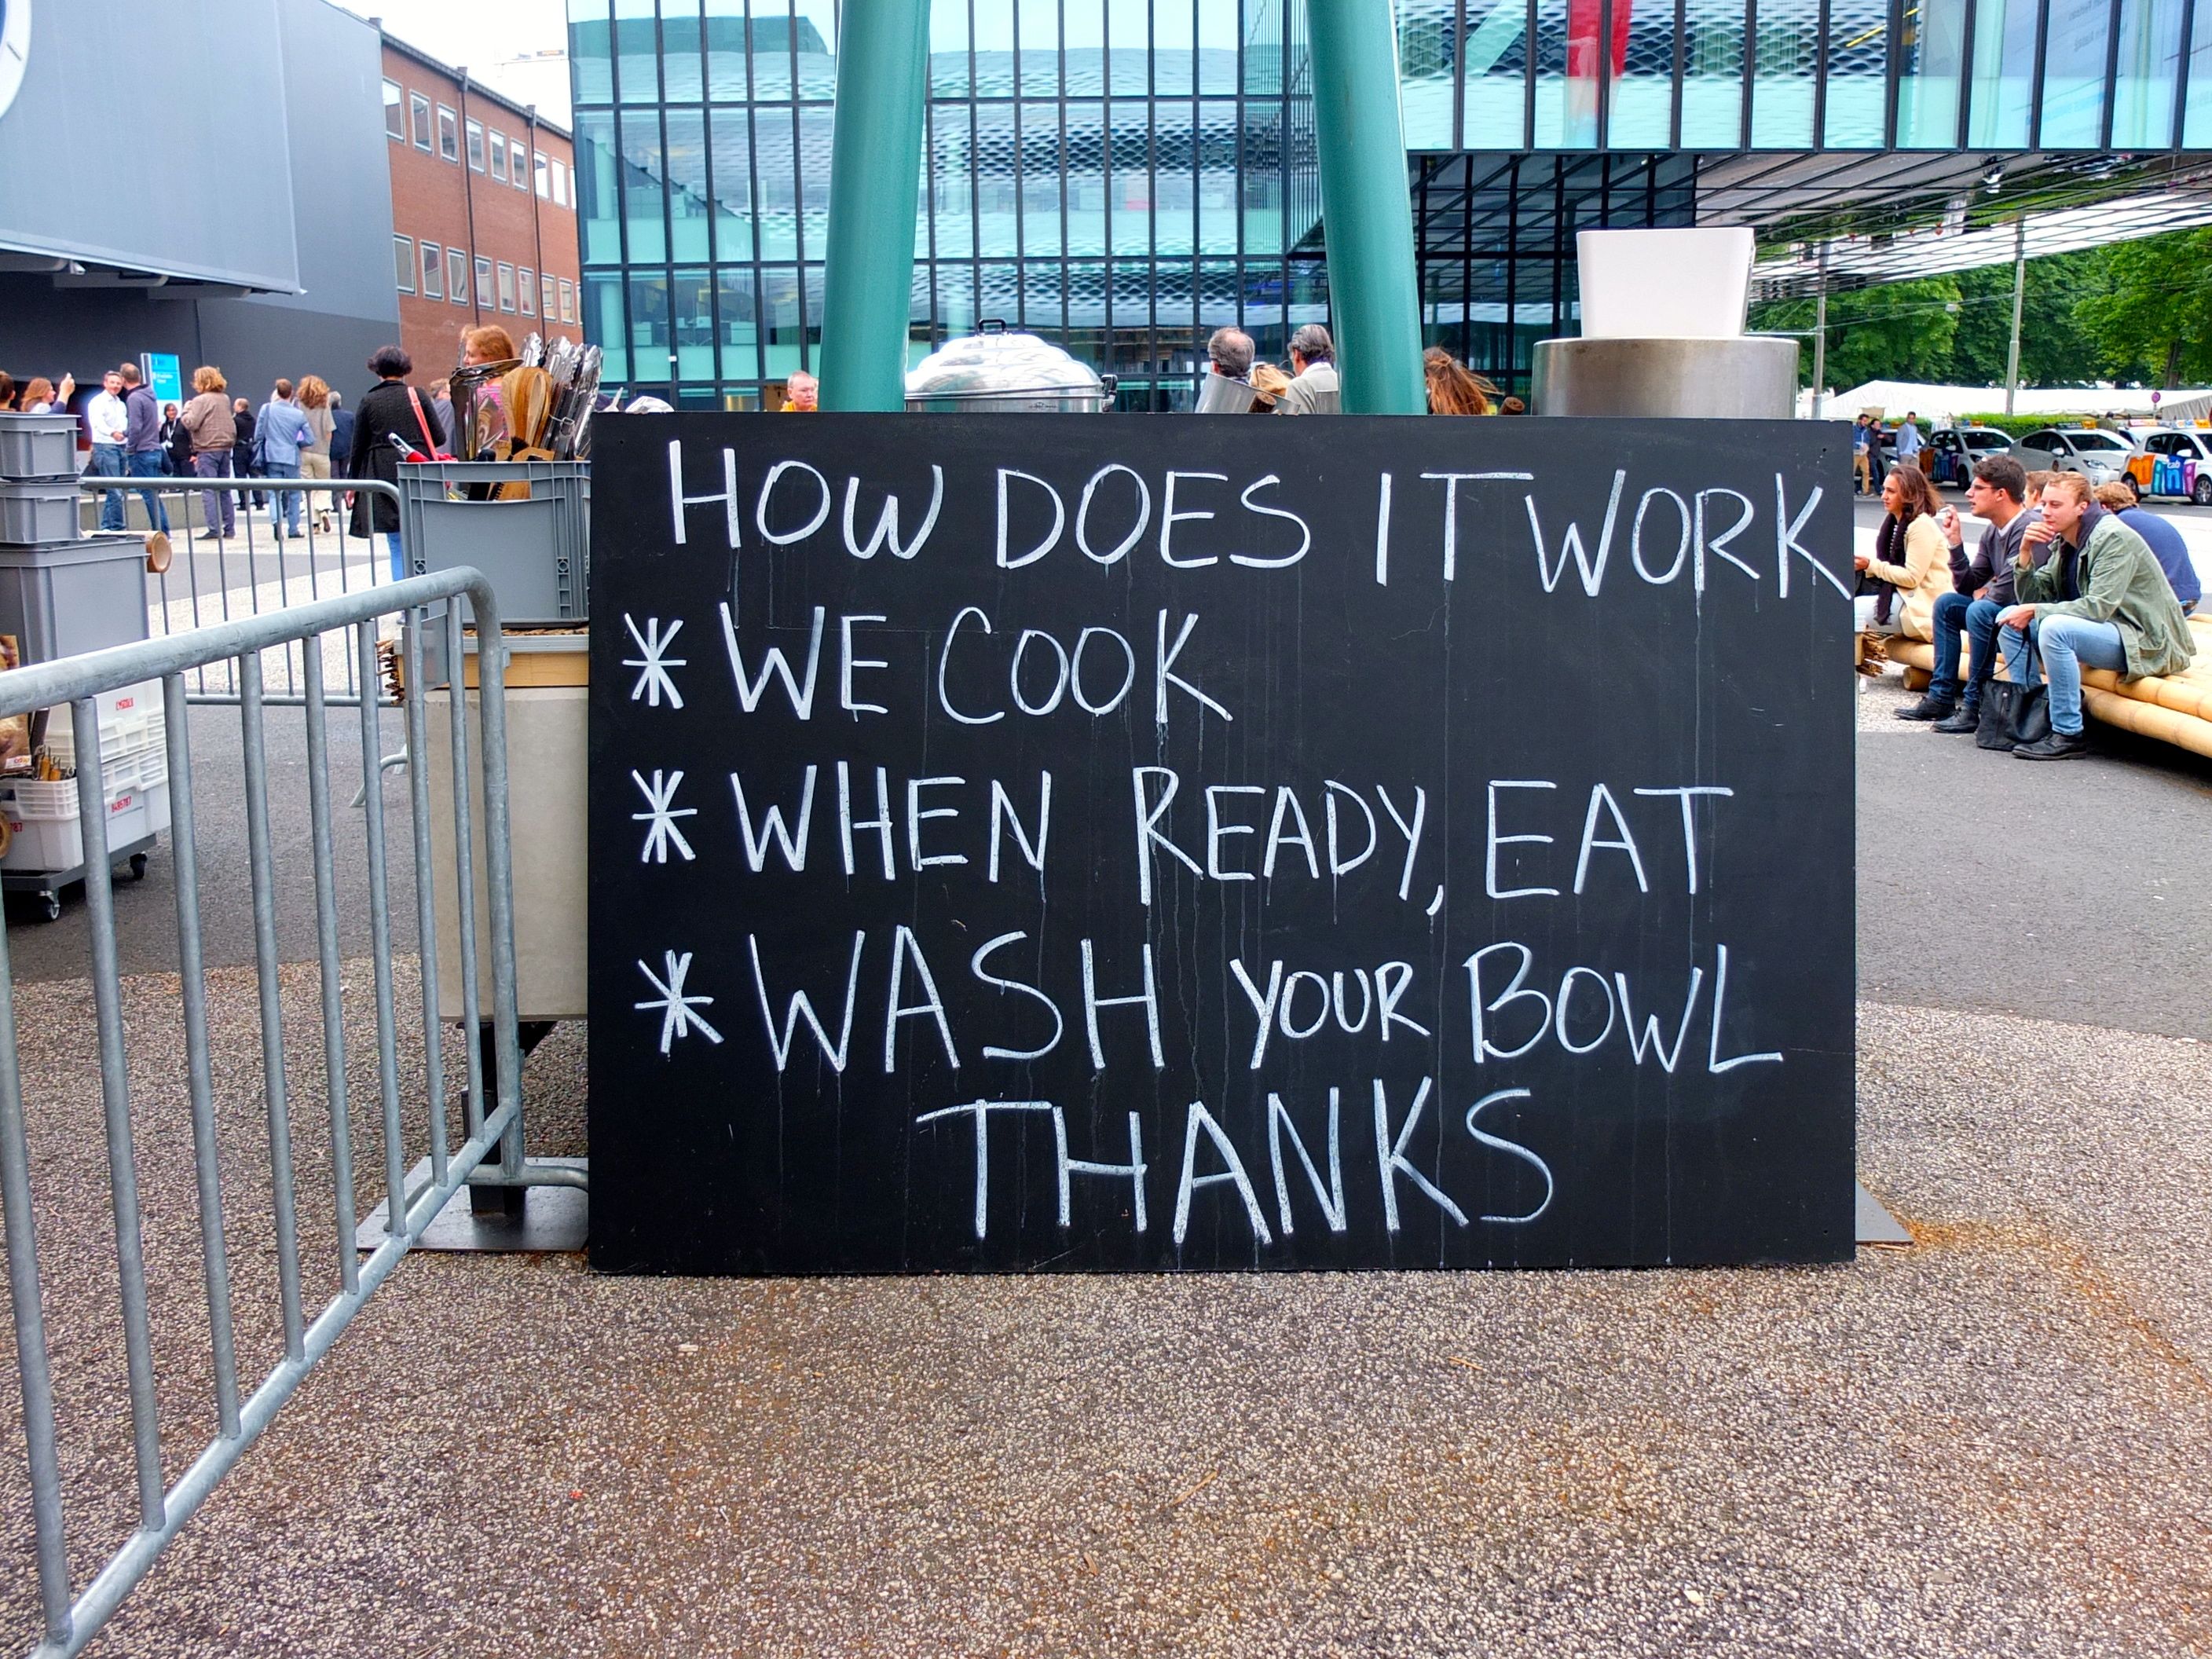 HOW DOES IT WORK
* WE COOK
* WHEN READY, EAT
* WASH YOUR BOWL
THANKS